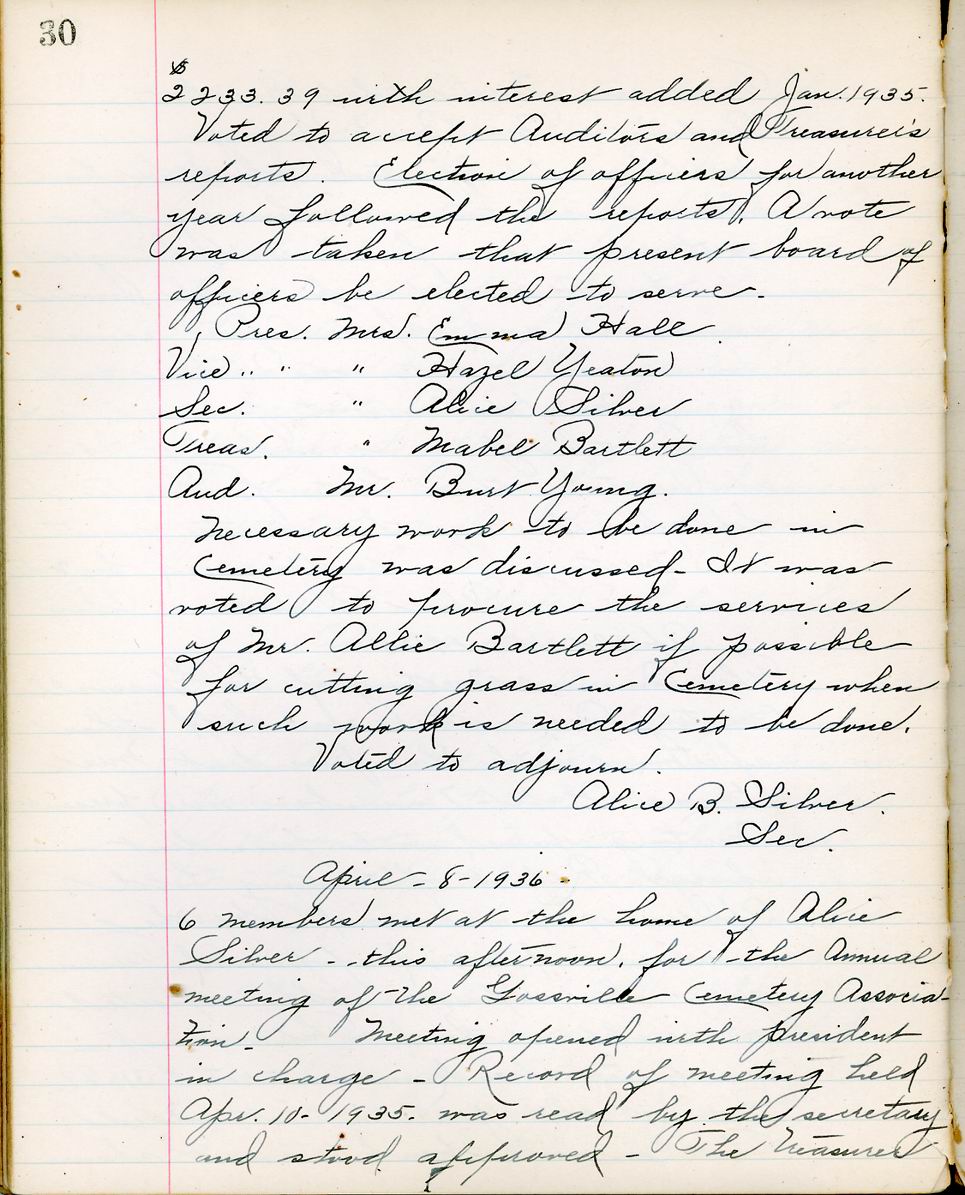 30
$
2233.39 with interest added Jan. 1935.
Voted to accept Auditors and Treasurer's
reports. Election of officers for another
year followed the reports. A vote
was taken that present board of
officers be elected to serve.
Pres. Mrs. Emma Hall
Vice " " " Hazel Yeaton
Sec. " Alice Silver
Treas. " Mabel Bartlett
Aud. Mr. Burt Young.
Necessary work to be done in
Cemetery was discussed - It was
voted to procure the services
of Mr. Allie Bartlett if possible
for cutting grass in Cemetery when
such work is needed to be done.
Voted to adjourn.
Alice B. Silver.
Sec.
April - 8 - 1936 -
6 members met at the home of Alice
Silver - this afternoon, for the Annual
meeting of the Gossville Cemetery Associa-
tion - Meeting opened with president
in charge - Record of meeting held
Apr. 10 - 1935. was read by the secretary
and stood approved - The Treasurer